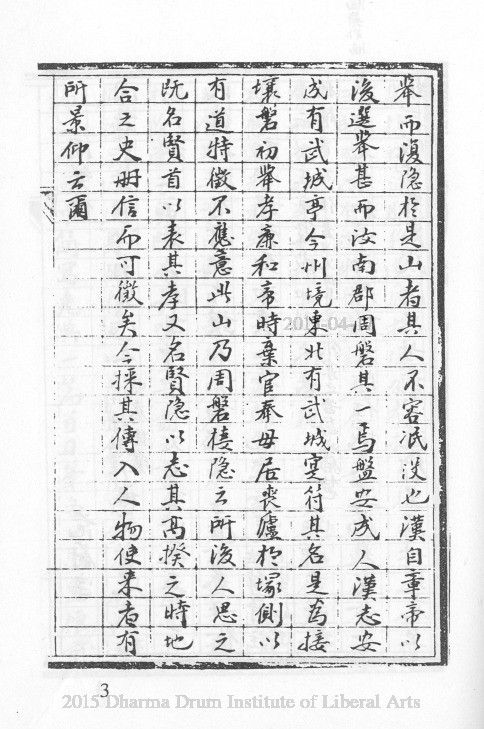 舉而復隐於是山者其人不容泯没也漢自章帝以
後選舉甚而汝南郡周磐其一焉盤安成人漢志安
成有武城亭今州境東北有武城寔符其名是爲接
壤磐初舉孝廉和帝時棄官奉母居喪廬於塚側以
有道特徵不應意此山乃周磐棲隐云所後人思之
既名賢首以表其孝又名賢隐以志其高揆之時地
合之史册信而可徵矣今採其傳入人物使来者有
所景仰云爾
2015-04-
3
2015 Dharma Drum Institute of Liberal Arts